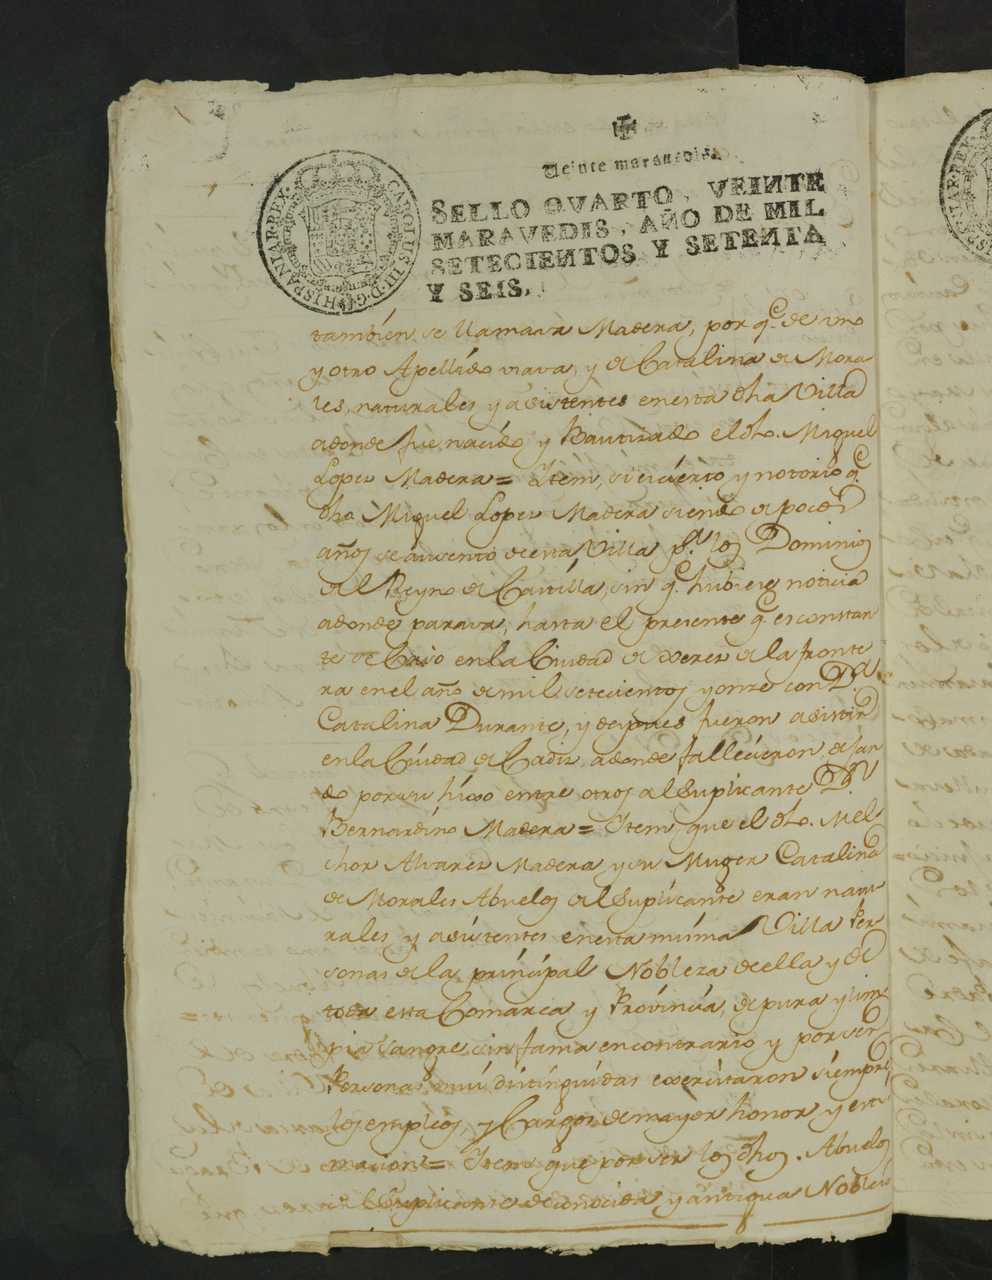 Veinte maravedis.
SELLO QVARTO, VEINTE
MARAVEDIS, AÑO DE MIL
SETECIENTOS Y SETENTA
Y SEIS.
CAROLUS III D G HISPANIAR REX
tambien se llamava Madera, por q.e de uno
y otro Apellido usava, y de Catalina de Mora-
les, naturales y asistentes en esta dha Villa
adonde fue nacido y Bautizado el dho. Miguel
Lopez Madera = Item, si es cierto y notorio q.e
dho Miguel Lopez Madera siendo de pocos
años se ausento de esta Villa p.a los Dominios
del Reyno de Castilla, sin q.e hubiese noticia
adonde parava, hasta el presente q.e es constan-
te se Caso en la Ciudad de Xerez de la fronte
ra en el año de mil setecientos y onze con D.a
Catalina Durante, y despues fueron a asistir
en la Ciudad de Cadiz, adonde fallecieron dejan
do por su hijo entre otros al Suplicante D.n
Bernardino Madera = Item, que el dho. Mel-
chor Alvarez Madera y su Muger Catalina
de Morales Abuelos del Suplicante eran natu-
rales y asistentes en esta misma Villa Per-
sonas de la principal Nobleza de ella y de
toda esta Comarca y Provincia, de pura y lim-
pia sangre, sin fama en contrario y por ser
Personas mui distinguidas exercitaron siempre
los empleos, y Cargos de mayor honor y esti-
macion = Item que por ser los dhos. Abuelos
del Suplicante de conocida y antigua Nobleza